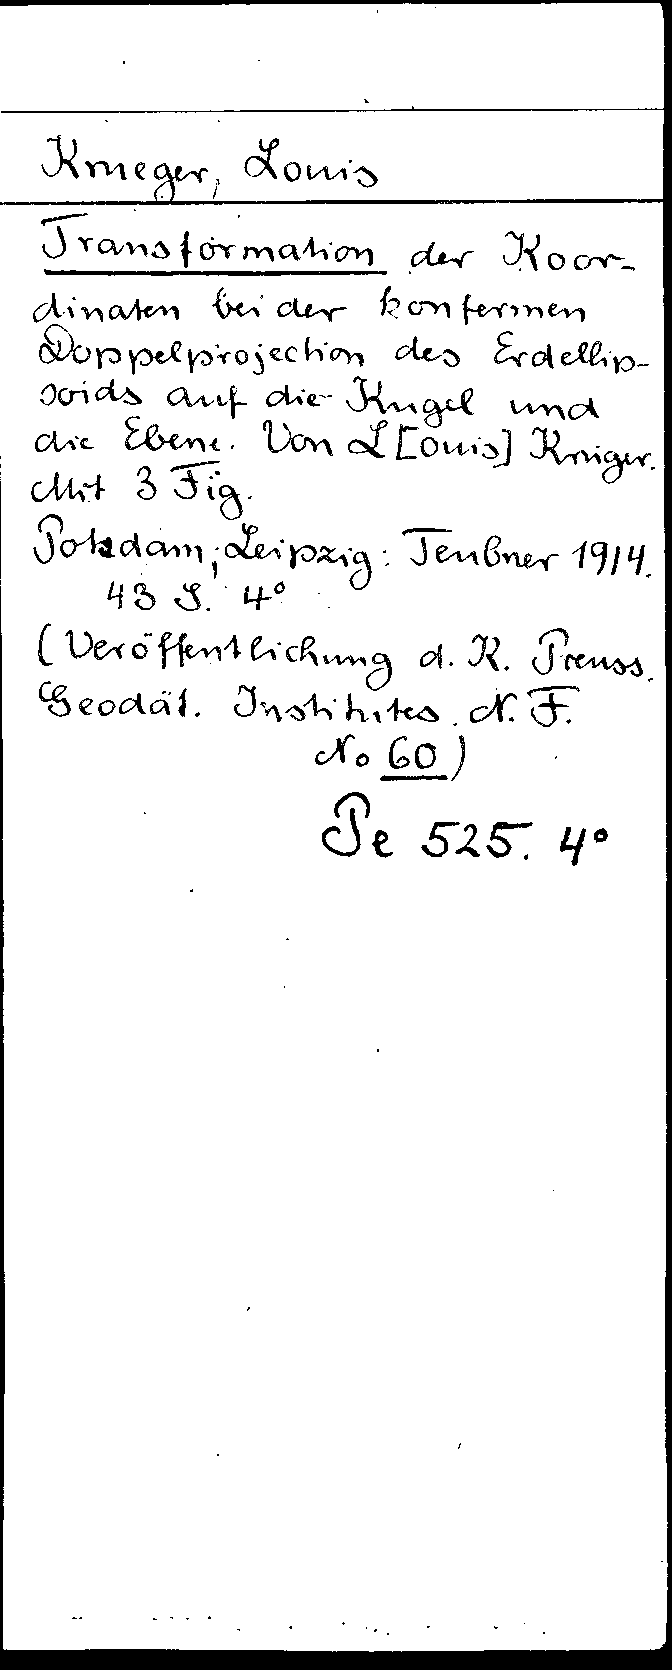 Krueger, Louis
Transformation der Koor-
dinaten bei der konformen
Doppelprojection des Erdellip-
soids auf die Kugel und
die Ebene. Von L[ouis] Krüger.
Mit 3 Fig.
Potsdam; Leipzig: Teubner 1914.
43 S. 4°
(Veröffentlichung d. K. Preuss.
Geodät. Institutes. N. F.
No 60)
Pe 525. 4°